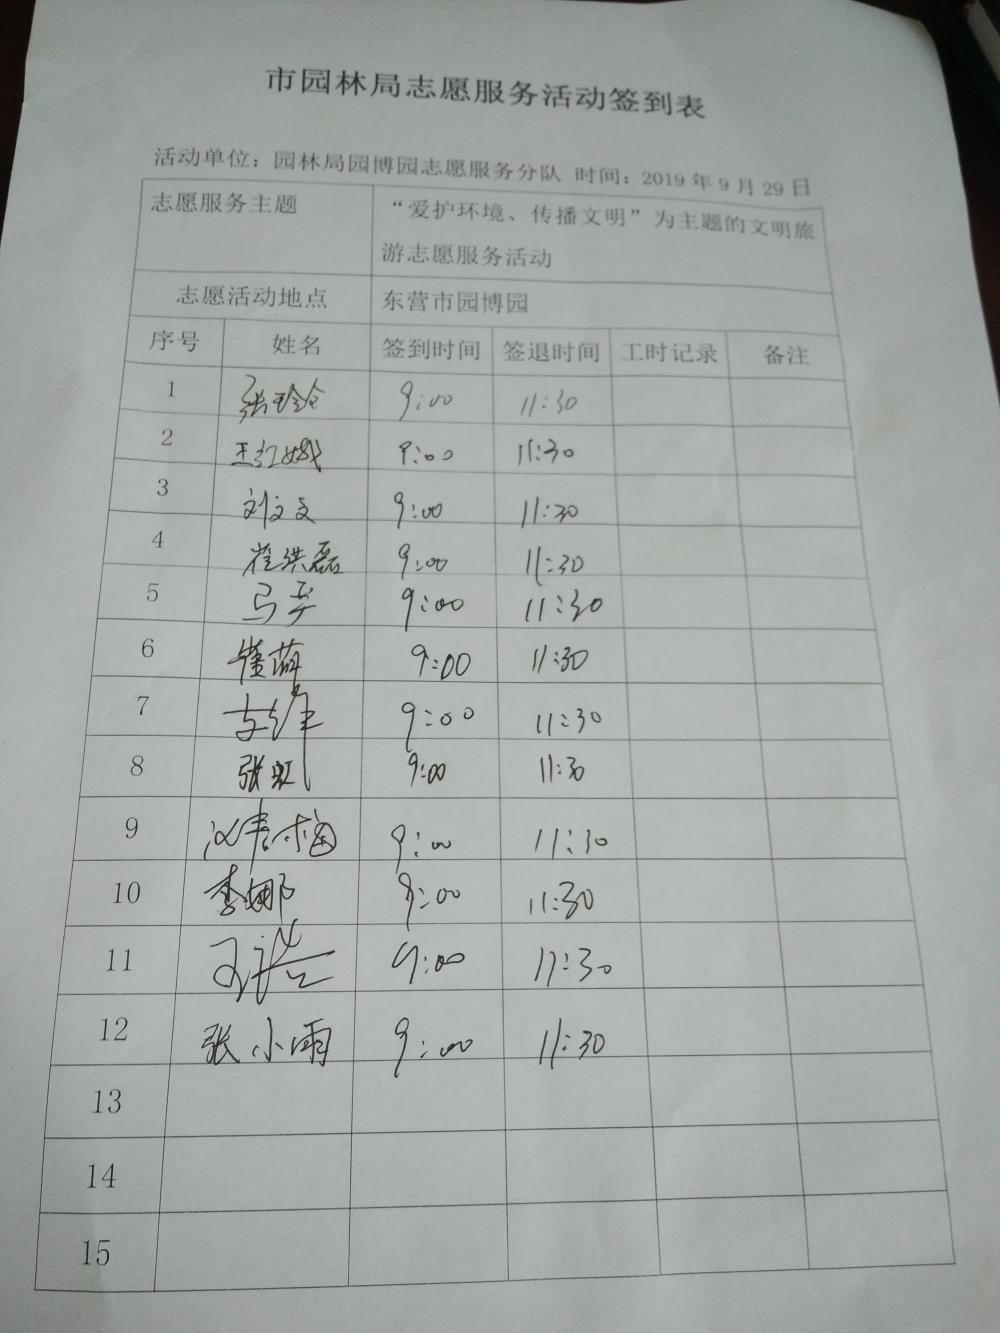 市园林局志愿服务活动签到表
活动单位：园林局园博园志愿服务分队 时间：2019年9月29日
志愿服务主题 “爱护环境、传播文明”为主题的文明旅
游志愿服务活动
志愿活动地点 东营市园博园
序号 姓名 签到时间 签退时间 工时记录 备注
1 张玲 9:00 11:30
2 王红娥 9:00 11:30
3 刘文文 9:00 11:30
4 崔洪磊 9:00 11:30
5 马 9:00 11:30
6 崔萌 9:00 11:30
7 9:00 11:30
8 张虹 9:00 11:30
9 9:00 11:30
10 李娜 9:00 11:30
11 王浩 9:00 11:30
12 张小雨 9:00 11:30
13
14
15